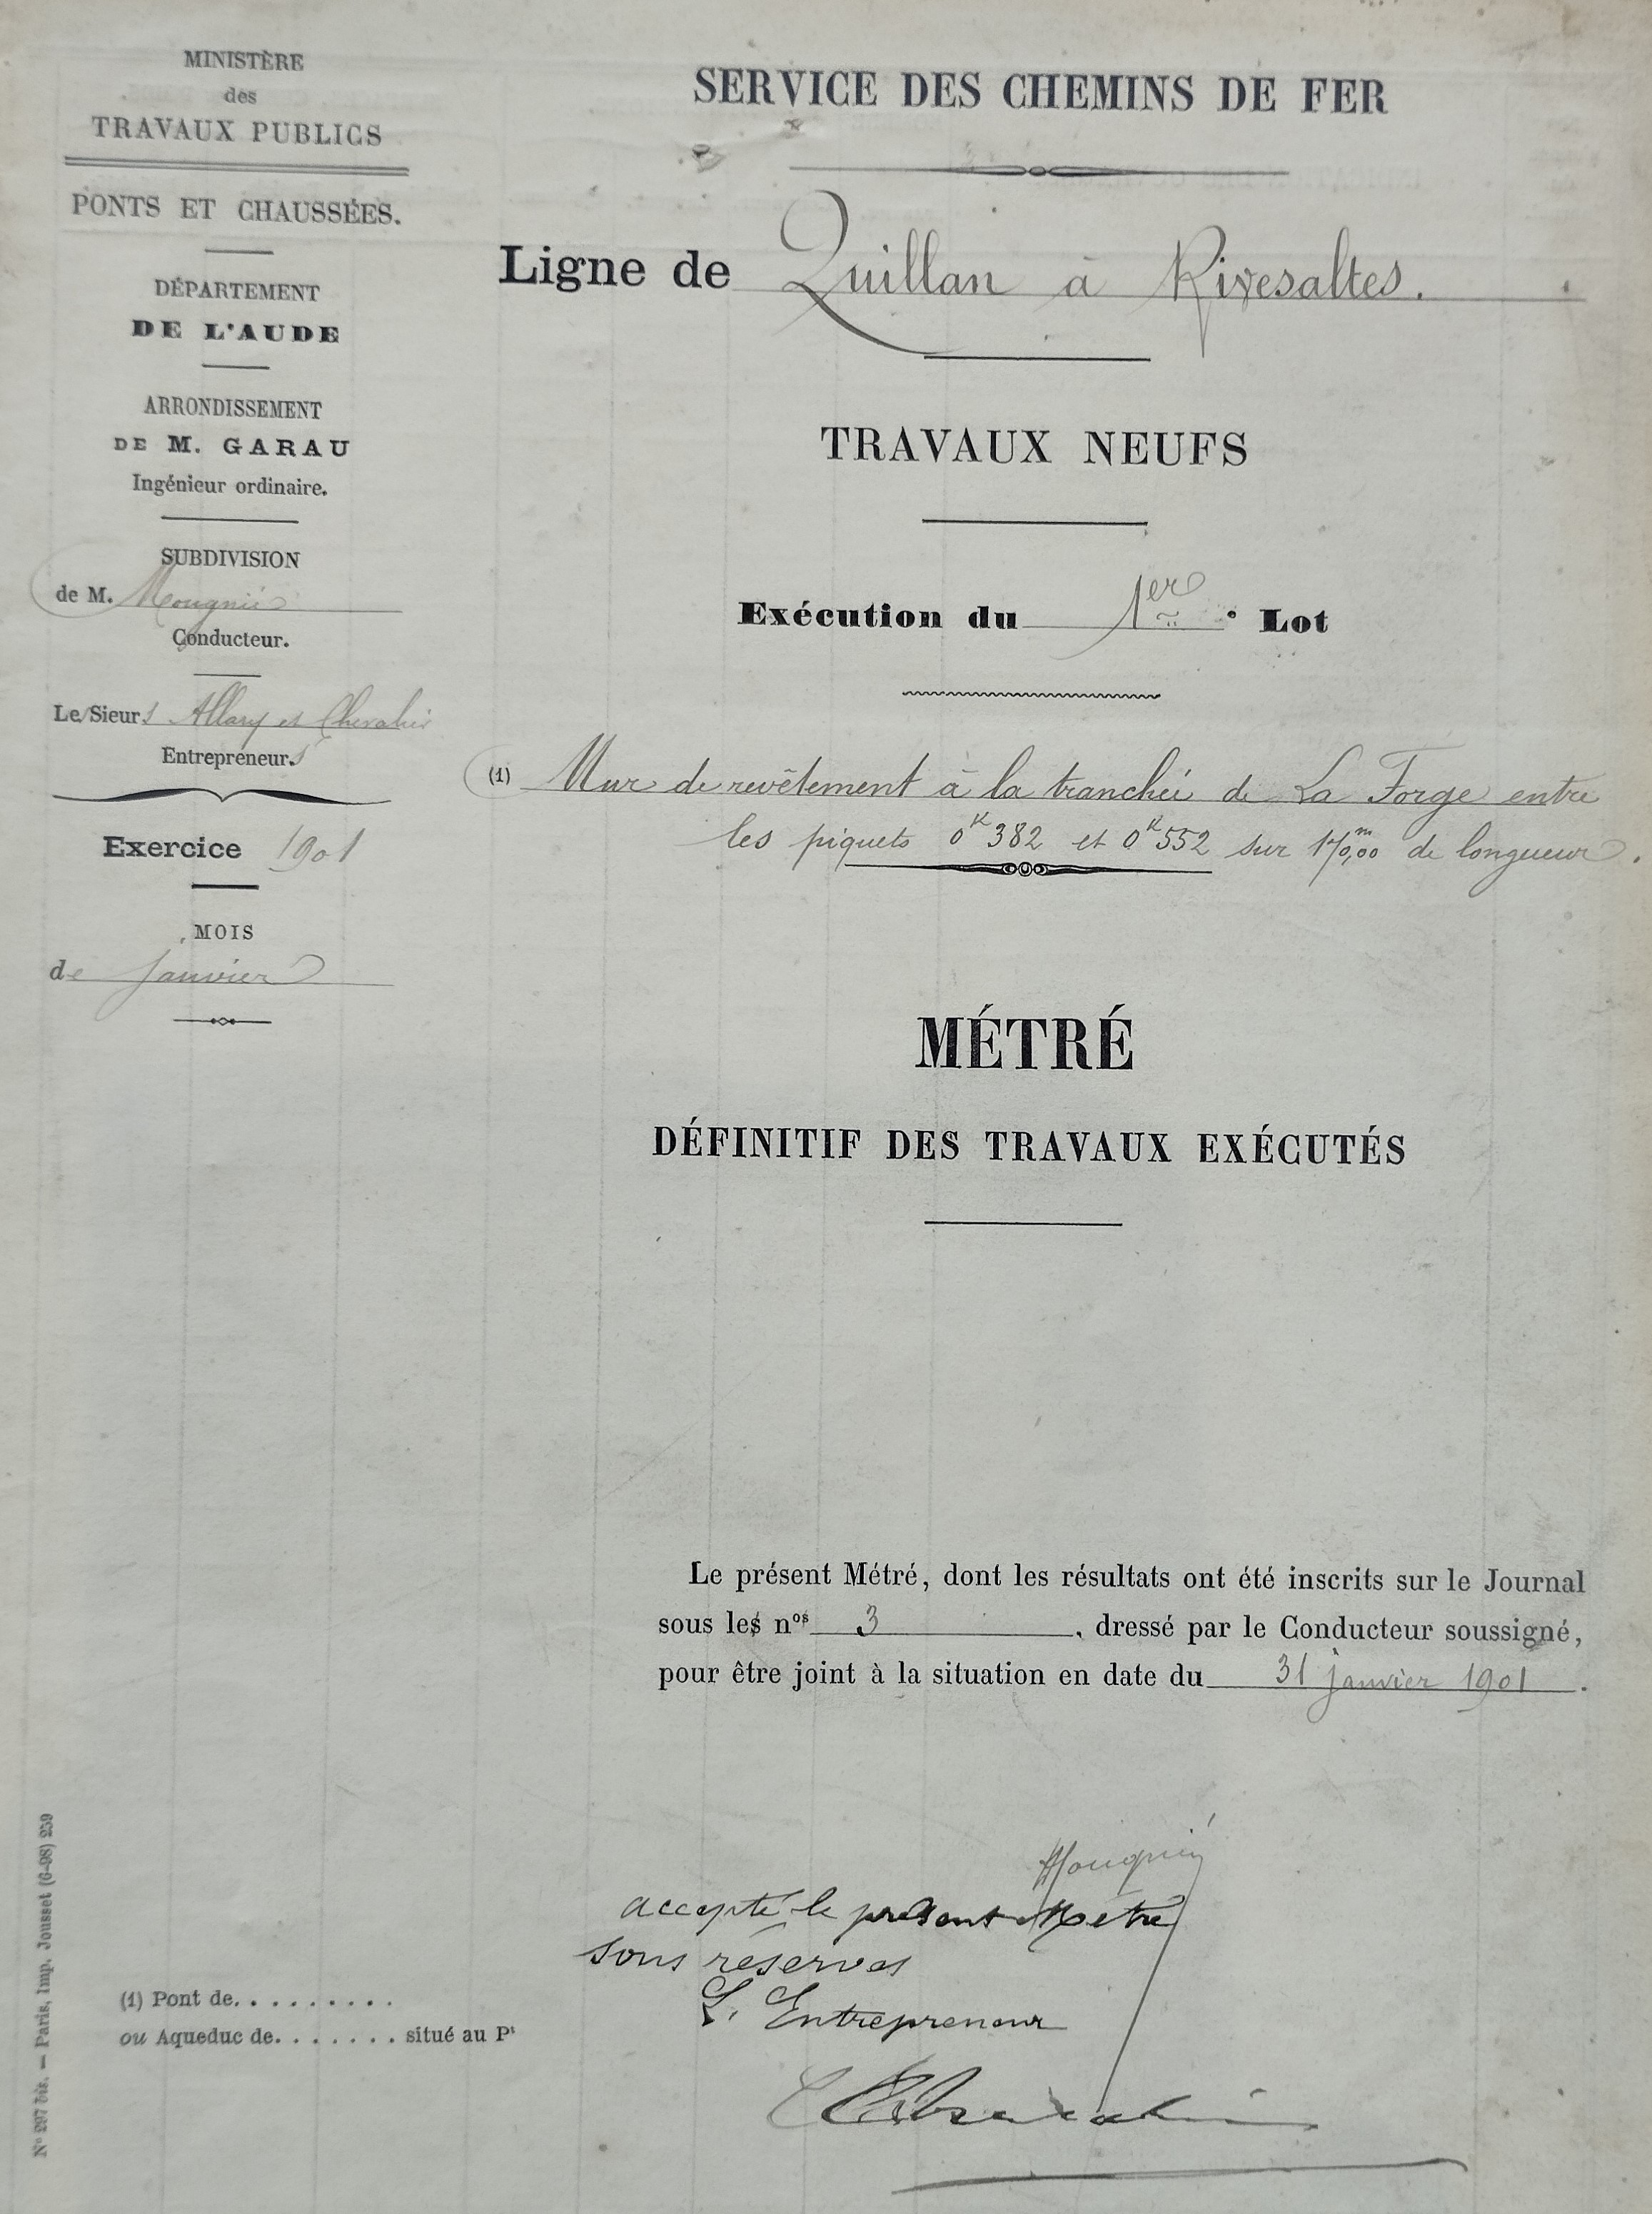 MINISTÈRE
des
TRAVAUX PUBLICS
PONTS ET CHAUSSÉES.
DÉPARTEMENT
DE L'AUDE
ARRONDISSEMENT
DE M. GARAU
Ingénieur ordinaire.
SUBDIVISION
de M. Mougnié
Conducteur.
Le Sieurs Allary et Chevalier
Entrepreneurs
Exercice 1901
MOIS
de Janvier
SERVICE DES CHEMINS DE FER
Ligne de Quillan à Rivesaltes.
TRAVAUX NEUFS
Exécution du 1er Lot
(1) Mur de revêtement à la tranchée de La Forge entre
les piquets 0K382 et 0K552 sur 170,m00 de longueur.
MÉTRÉ
DÉFINITIF DES TRAVAUX EXÉCUTÉS
Le présent Métré, dont les résultats ont été inscrits sur le Journal
sous les nos 3, dressé par le Conducteur soussigné,
pour être joint à la situation en date du 31 janvier 1901.
Mougnié
accepté le présent Métré
sous réserves
L. Entrepreneur
Chevalier
(1) Pont de. . . . . . . . .
ou Aqueduc de. . . . . . . situé au Pt
No 297 bis. — Paris, Imp. Jousset (6-98) 259